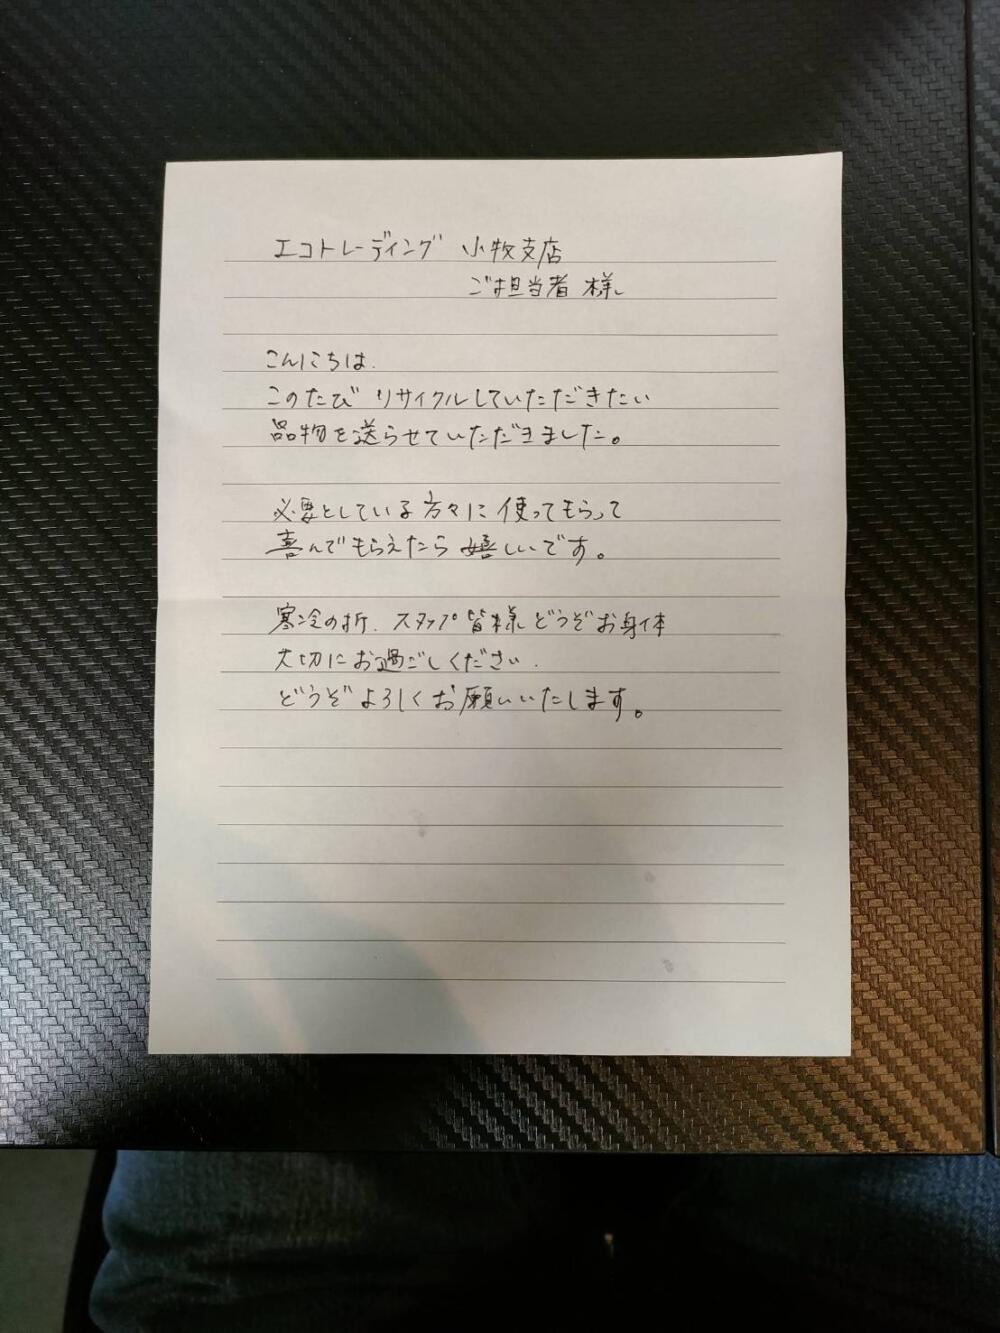 エコトレーディング 小牧支店
ご担当者 様
こんにちは.
このたび リサイクルしていただきたい
品物を送らせていただきました。
必要としている方々に 使ってもらって
喜んでもらえたら 嬉しいです。
寒冷の折. スタッフ皆様 どうぞお身体
大切にお過ごしください.
どうぞ よろしくお願いいたします。